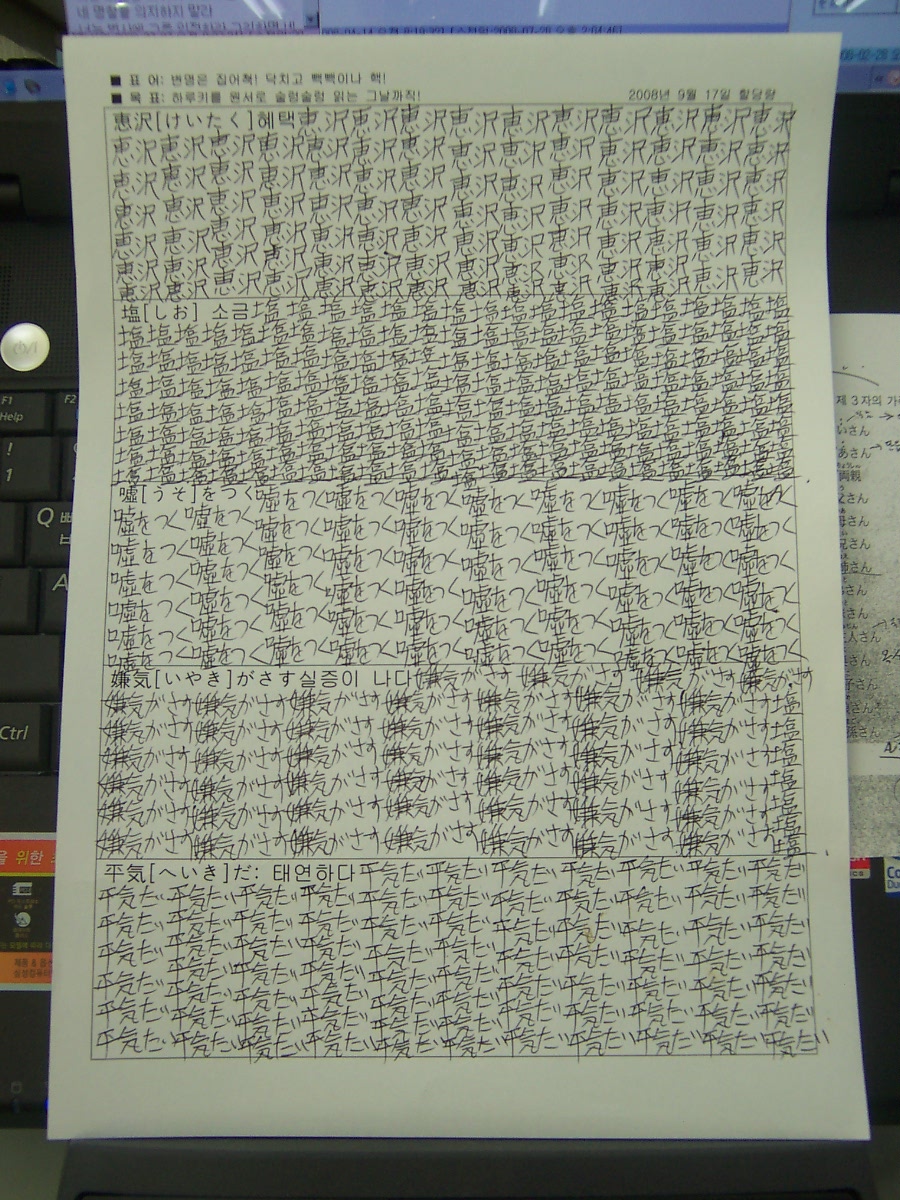 네 명철을 의지하지 말라
■ 표 어: 변명은 집어쳑! 닥치고 빽빽이나 핵!
■ 목 표: 하루키를 원서로 술렁술렁 읽는 그날까직!
2008년 9월 17일 할당량
恵沢[けいたく]혜택恵沢恵沢恵沢恵沢恵沢恵沢恵沢恵沢恵沢恵沢
恵沢恵沢恵沢恵沢恵沢恵沢恵沢恵沢恵沢恵沢恵沢恵沢恵沢恵沢
恵沢恵沢恵沢恵沢恵沢恵沢恵沢恵沢恵沢恵沢恵沢恵沢恵沢恵沢
恵沢恵沢恵沢恵沢恵沢恵沢恵沢恵沢恵沢恵沢恵沢恵沢恵沢恵沢
恵沢恵沢恵沢恵沢恵沢恵沢恵沢恵沢恵沢恵沢恵沢恵沢恵沢恵沢
恵沢恵沢恵沢恵沢恵沢恵沢恵沢恵沢恵沢恵沢恵沢恵沢恵沢恵沢
塩[しお] 소금塩塩塩塩塩塩塩塩塩塩塩塩塩塩塩
塩塩塩塩塩塩塩塩塩塩塩塩塩塩塩塩塩塩塩塩
塩塩塩塩塩塩塩塩塩塩塩塩塩塩塩塩塩塩塩塩
塩塩塩塩塩塩塩塩塩塩塩塩塩塩塩塩塩塩塩塩
塩塩塩塩塩塩塩塩塩塩塩塩塩塩塩塩塩塩塩塩
塩塩塩塩塩塩塩塩塩塩塩塩塩塩塩塩塩塩塩塩
塩塩塩塩塩塩塩塩塩塩塩塩塩塩塩塩塩塩塩塩
嘘[うそ]をつく嘘をつく嘘をつく嘘をつく嘘をつく嘘をつく嘘をつく嘘をつく嘘をつく
嘘をつく嘘をつく嘘をつく嘘をつく嘘をつく嘘をつく嘘をつく嘘をつく嘘をつく嘘をつく
嘘をつく嘘をつく嘘をつく嘘をつく嘘をつく嘘をつく嘘をつく嘘をつく嘘をつく嘘をつく
嘘をつく嘘をつく嘘をつく嘘をつく嘘をつく嘘をつく嘘をつく嘘をつく嘘をつく嘘をつく
嘘をつく嘘をつく嘘をつく嘘をつく嘘をつく嘘をつく嘘をつく嘘をつく嘘をつく嘘をつく
嘘をつく嘘をつく嘘をつく嘘をつく嘘をつく嘘をつく嘘をつく嘘をつく嘘をつく嘘をつく
嘘をつく嘘をつく嘘をつく嘘をつく嘘をつく嘘をつく嘘をつく嘘をつく嘘をつく嘘をつく
嫌気[いやき]がさす실증이 나다嫌気がさす嫌気がさす嫌気がさす嫌気がさす
嫌気がさす嫌気がさす嫌気がさす嫌気がさす嫌気がさす嫌気がさす嫌気がさす塩
嫌気がさす嫌気がさす嫌気がさす嫌気がさす嫌気がさす嫌気がさす嫌気がさす塩
嫌気がさす嫌気がさす嫌気がさす嫌気がさす嫌気がさす嫌気がさす嫌気がさす塩
嫌気がさす嫌気がさす嫌気がさす嫌気がさす嫌気がさす嫌気がさす嫌気がさす塩
嫌気がさす嫌気がさす嫌気がさす嫌気がさす嫌気がさす嫌気がさす嫌気がさす塩
嫌気がさす嫌気がさす嫌気がさす嫌気がさす嫌気がさす嫌気がさす嫌気がさす塩
平気[へいき]だ: 태연하다平気だ平気だ平気だ平気だ平気だ平気だ平気だ
平気だ平気だ平気だ平気だ平気だ平気だ平気だ平気だ平気だ平気だ平気だ
平気だ平気だ平気だ平気だ平気だ平気だ平気だ平気だ平気だ平気だ平気だ
平気だ平気だ平気だ平気だ平気だ平気だ平気だ平気だ平気だ平気だ平気だ
平気だ平気だ平気だ平気だ平気だ平気だ平気だ平気だ平気だ平気だ平気だ
平気だ平気だ平気だ平気だ平気だ平気だ平気だ平気だ平気だ平気だ平気だ
平気だ平気だ平気だ平気だ平気だ平気だ平気だ平気だ平気だ平気だ平気だ
F1
Help
F2
!
1
Q ㅃ
ㅂ
A
Ctrl
을 위한
제 3자의 가